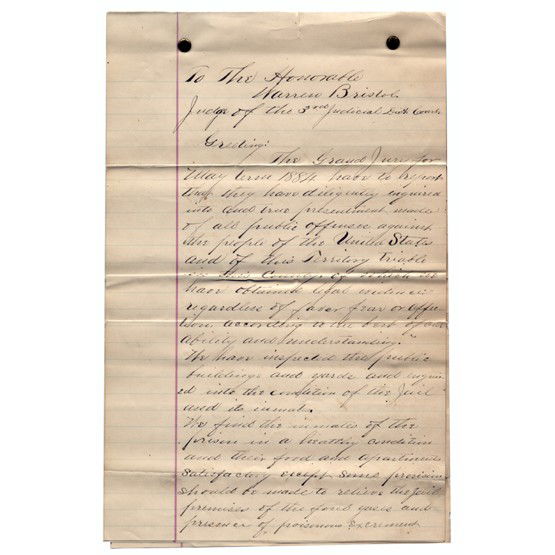 To The Honorable
Warren Bristol
Judge of the 3rd Judicial Dist Court
Greeting:
The Grand Jury for
May term 1884 have to report
that they have diligently enquired
into and true presentment made
of all public offenses against
the people of the United States
and of this Territory triable
in this County of which we
have obtained legal evidence
regardless of favor fear or affec
tion, according to the best of our
ability and understanding.
We have inspected the public
buildings and yards and enquir
ed into the condition of the Jail
and its inmates.
We find the inmates of the
prison in a healthy condition
and their food and apartments
satisfactory except some provision
should be made to relieve the Jail
premises of the foul gases and
presence of poisonous excrement